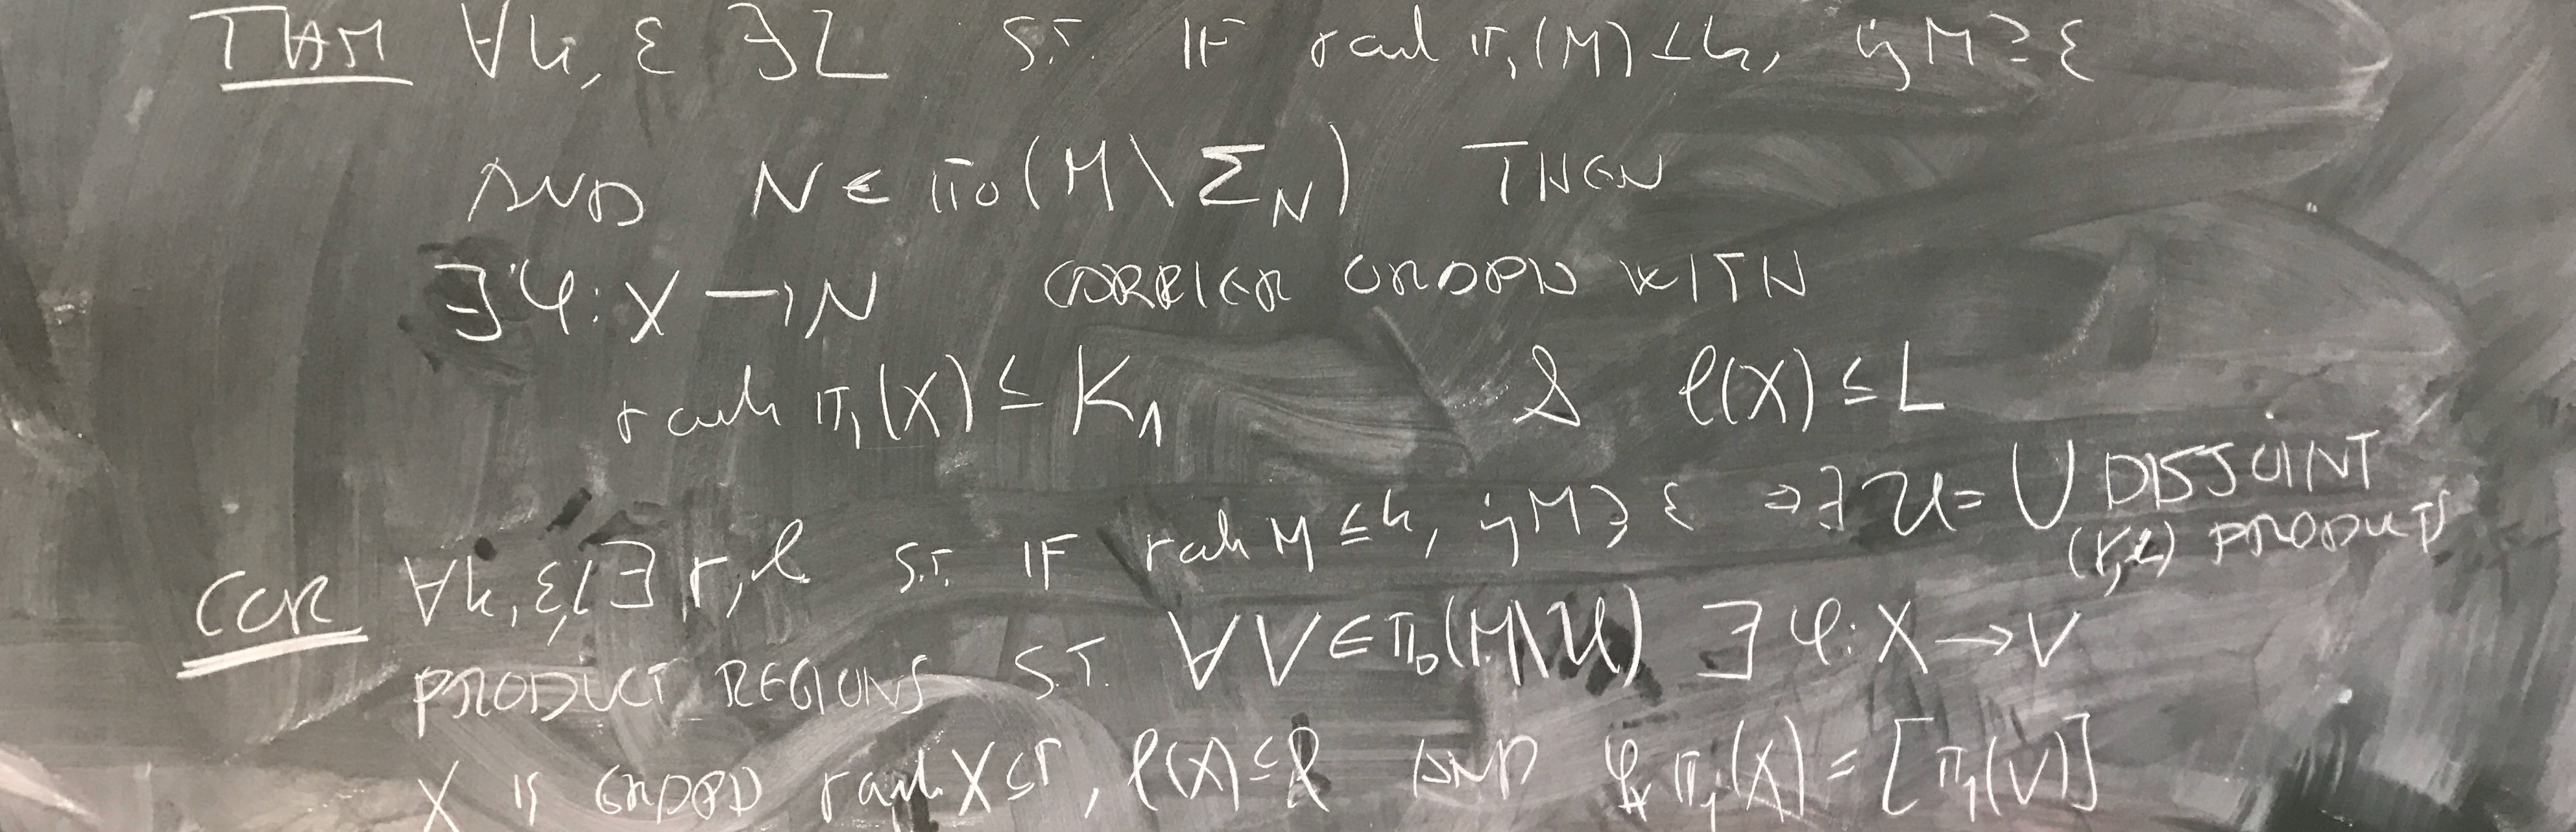 THM ∀k, ε ∃L S.T. IF rank π₁(M) ≤ k, inj M ≥ ε
AND N ∈ π₀(M \ Σ_N) THEN
∃ φ: X → N CARRIER GRAPH WITH
rank π₁(X) ≤ K₁ & ℓ(X) ≤ L
COR ∀k, ε, ∃ r, ℓ S.T. IF rank M ≤ k, inj M ≥ ε ⇒ ∃ U = ∪ DISJOINT
(r, ε) PRODUCTS
PRODUCT REGIONS S.T. ∀V ∈ π₀(M \ U) ∃ φ: X → V
X IS GRAPH rank X ≤ r, ℓ(X) ≤ ℓ AND φ_* π₁(X) = [π₁(V)]